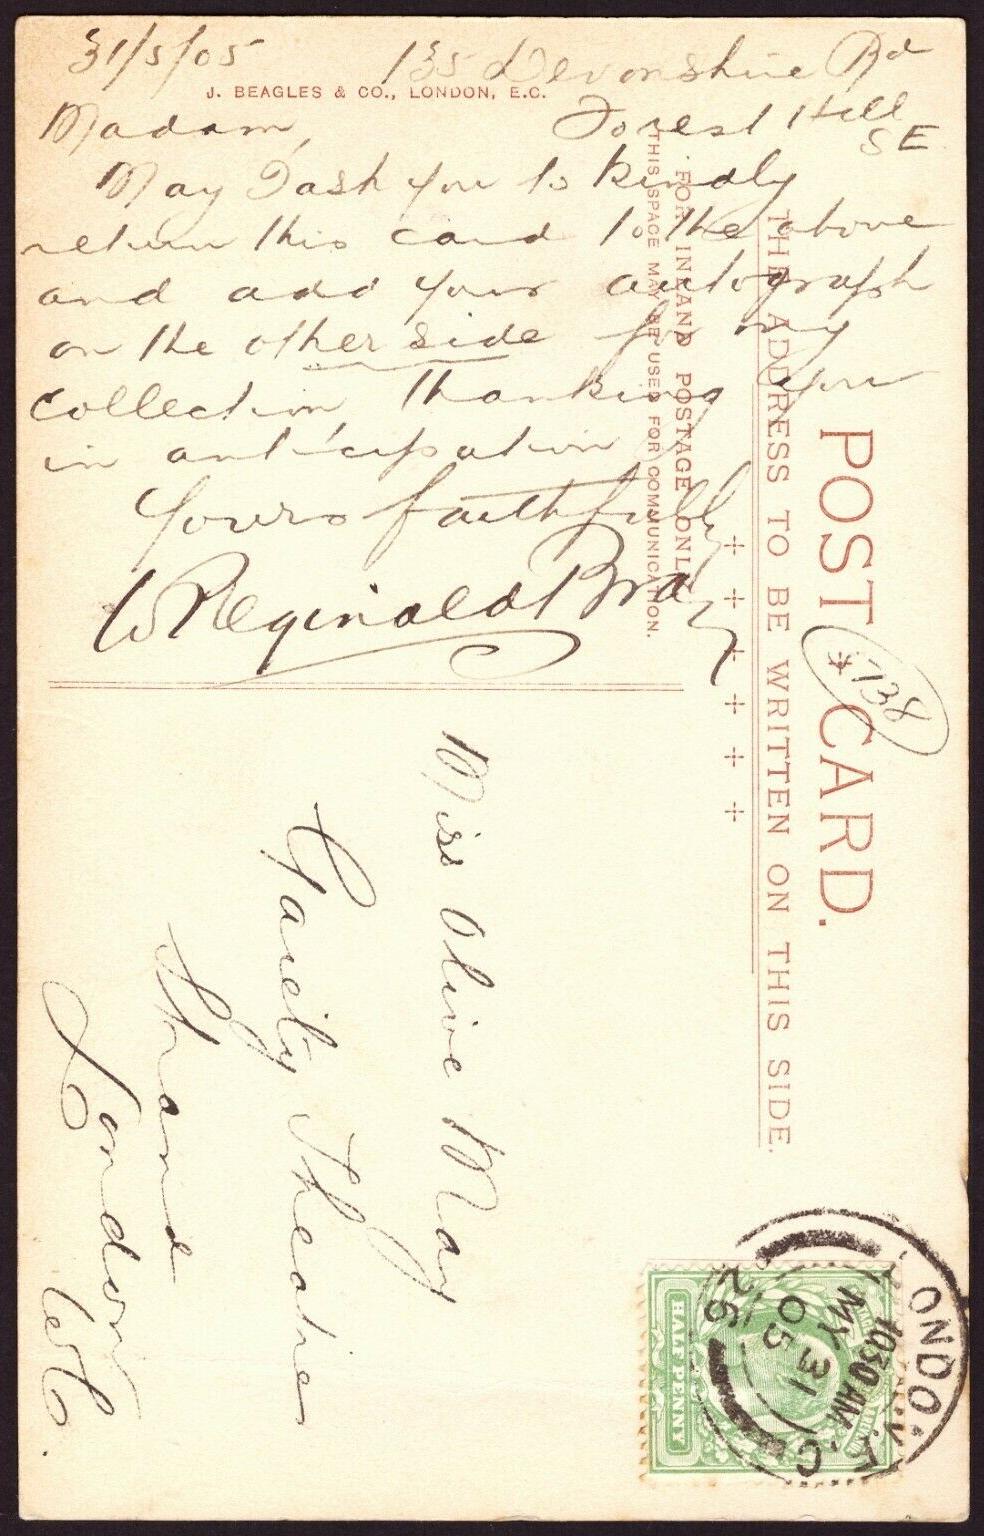 31/5/05 135 Devonshire Rd
J. BEAGLES & CO., LONDON, E.C.
Forest Hill
SE
Madam,
May I ask you to kindly
return this card to the above
and add your autograph
on the other side for my
collection thanking you
in anticipation
Yours faithfully
W Reginald Bray
POST CARD.
738
THE ADDRESS TO BE WRITTEN ON THIS SIDE.
FOR INLAND POSTAGE ONLY
THIS SPACE MAY BE USED FOR COMMUNICATION.
Miss Olive May
Gaiety Theatre
Strand
London
WC.
LONDON
10.30 AM
MY 31
05
26
HALF PENNY